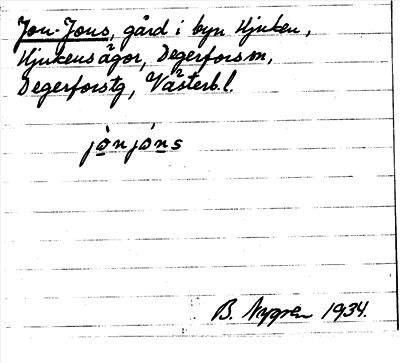 Jon-Jons, gård i byn Hjuken,
Hjukensägor, Degerforsm,
Degerforstg, Västerb.l.
jònjóns
B. Nygren 1934.